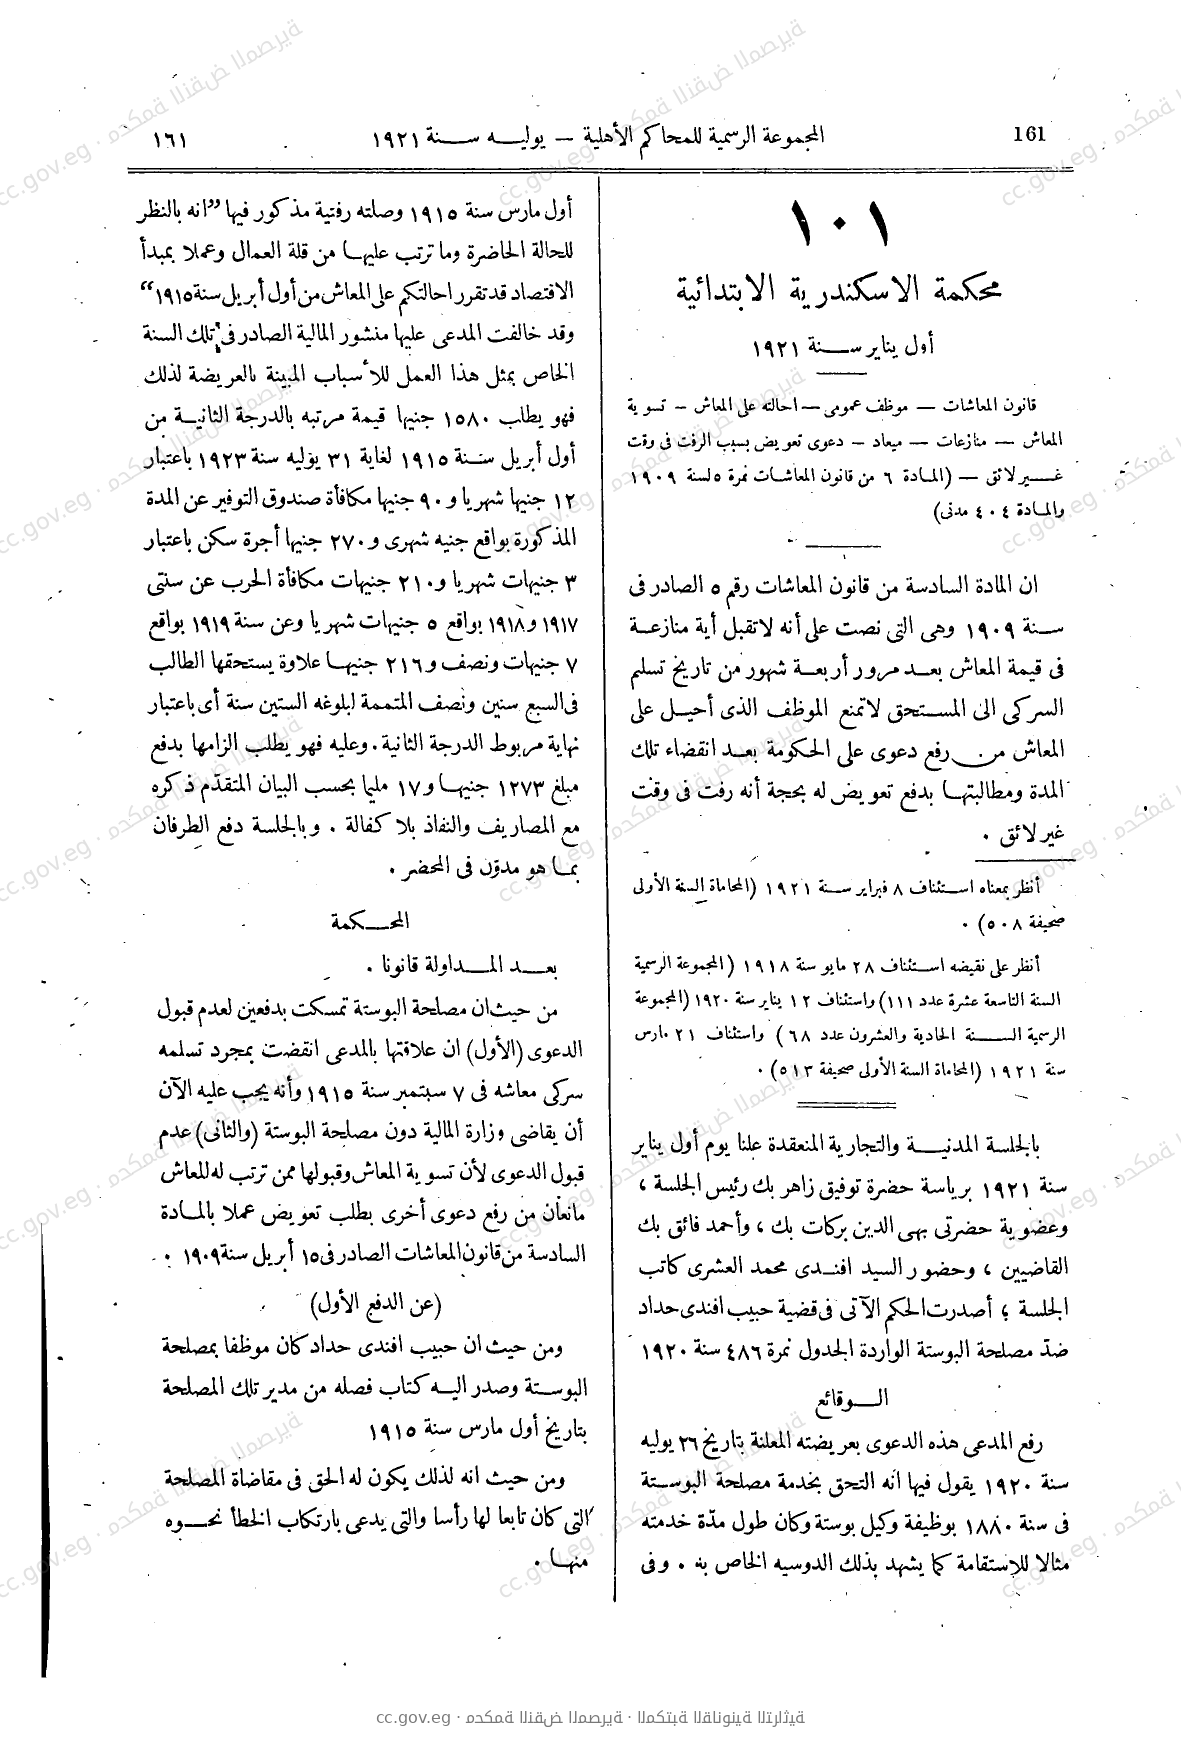 161
المجموعة الرسمية للمحاكم الأهلية – يوليه سنة ١٩٢١
١٦١
١٠١
محكمة الاسكندرية الابتدائية
أول يناير سنة ١٩٢١
قانون المعاشات – موظف عمومى – احالته على المعاش – تسوية
المعاش – منازعات – ميعاد – دعوى تعويض بسبب الرفت فى وقت
غير لائق – (المادة ٦ من قانون المعاشات نمرة ٥ لسنة ١٩٠٩
والمادة ٤٠٤ مدنى)
ان المادة السادسة من قانون المعاشات رقم ٥ الصادر فى
سنة ١٩٠٩ وهى التى نصت على أنه لا تقبل أية منازعة
فى قيمة المعاش بعد مرور أربعة شهور من تاريخ تسليم
السركى الى المستحق لا تمنع الموظف الذى أحيل على
المعاش من رفع دعوى على الحكومة بعد انقضاء تلك
المدة ومطالبتها بدفع تعويض له بحجة أنه رفت فى وقت
غير لائق .
أنظر بمعناه استئناف ٨ فبراير سنة ١٩٢١ (المحاماة السنة الأولى
صحيفة ٥٠٨) .
أنظر على نقيضه استئناف ٢٨ مايو سنة ١٩١٨ (المجموعة الرسمية
السنة التاسعة عشرة عدد ١١١) واستئناف ١٢ يناير سنة ١٩٢٠ (المجموعة
الرسمية السنة الحادية والعشرون عدد ٦٨) واستئناف ٢١ مارس
سنة ١٩٢١ (المحاماة السنة الأولى صحيفة ٥١٣) .
بالجلسة المدنية والتجارية المنعقدة علنا يوم أول يناير
سنة ١٩٢١ برياسة حضرة توفيق زاهر بك رئيس الجلسة ،
وعضوية حضرتى بهى الدين بركات بك ، وأحمد فائق بك
القاضيين ، وحضور السيد افندى محمد العشرى كاتب
الجلسة ، أصدرت الحكم الآتى فى قضية حبيب افندى حداد
ضد مصلحة البوستة الواردة الجدول نمرة ٤٨٦ سنة ١٩٢٠
الوقائع
رفع المدعى هذه الدعوى بعريضته المعلنة بتاريخ ٢٦ يوليه
سنة ١٩٢٠ يقول فيها انه التحق بخدمة مصلحة البوستة
فى سنة ١٨٨٠ بوظيفة وكيل بوستة وكان طول مدّة خدمته
مثالا للاستقامة كما يشهد بذلك الدوسيه الخاص به . وفى
أول مارس سنة ١٩١٥ وصلته رفتية مذكور فيها ”انه بالنظر
للحالة الحاضرة وما ترتب عليها من قلة العمال وعملا بمبدأ
الاقتصاد قد تقرر احالتكم على المعاش من أول أبريل سنة ١٩١٥“
وقد خالفت المدعى عليها منشور المالية الصادر فى تلك السنة
الخاص بمثل هذا العمل للأسباب المبينة بالعريضة لذلك
فهو يطلب ١٥٨٠ جنيها قيمة مرتبه بالدرجة الثانية من
أول أبريل سنة ١٩١٥ لغاية ٣١ يوليه سنة ١٩٢٣ باعتبار
١٢ جنيها شهريا و٩٠ جنيها مكافأة صندوق التوفير عن المدة
المذكورة بواقع جنيه شهرى و٢٧٠ جنيها أجرة سكن باعتبار
٣ جنيهات شهريا و٢١٠ جنيهات مكافأة الحرب عن سنتى
١٩١٧ و١٩١٨ بواقع ٥ جنيهات شهريا وعن سنة ١٩١٩ بواقع
٧ جنيهات ونصف و٢١٦ جنيها علاوة يستحقها الطالب
فى السبع سنين ونصف المتممة لبلوغه الستين سنة أى باعتبار
نهاية مربوط الدرجة الثانية . وعليه فهو يطلب الزامها بدفع
مبلغ ١٢٧٣ جنيها و١٧ مليما بحسب البيان المتقدّم ذكره
مع المصاريف والنفاذ بلا كفالة . وبالجلسة دفع الطرفان
بما هو مدوّن فى المحضر .
المحكمة
بعد المداولة قانونا .
من حيث ان مصلحة البوستة تمسكت بدفعين لعدم قبول
الدعوى (الأول) ان علاقتها بالمدعى انقضت بمجرد تسلمه
سركى معاشه فى ٧ سبتمبر سنة ١٩١٥ وأنه يجب عليه الآن
أن يقاضى وزارة المالية دون مصلحة البوستة (والثانى) عدم
قبول الدعوى لأن تسوية المعاش وقبولها ممن ترتب له للمعاش
مانعان من رفع دعوى أخرى بطلب تعويض عملا بالمادة
السادسة من قانون المعاشات الصادر فى ١٥ أبريل سنة ١٩٠٩ .
(عن الدفع الأول)
ومن حيث ان حبيب افندى حداد كان موظفا بمصلحة
البوستة وصدر اليه كتاب فصله من مدير تلك المصلحة
بتاريخ أول مارس سنة ١٩١٥
ومن حيث انه لذلك يكون له الحق فى مقاضاة المصلحة
التى كان تابعا لها رأسا والتى يدعى بارتكاب الخطأ نحوه
منها .
cc.gov.eg · محكمة النقض المصرية · المكتبة القانونية التراثية